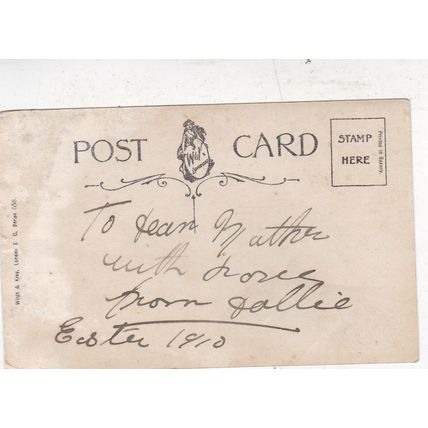 POST CARD
STAMP
HERE
Printed in Saxony.
Wildt & Kray, London E. C. Series
To dear Mother
with love
from Dollie
Easter 1910